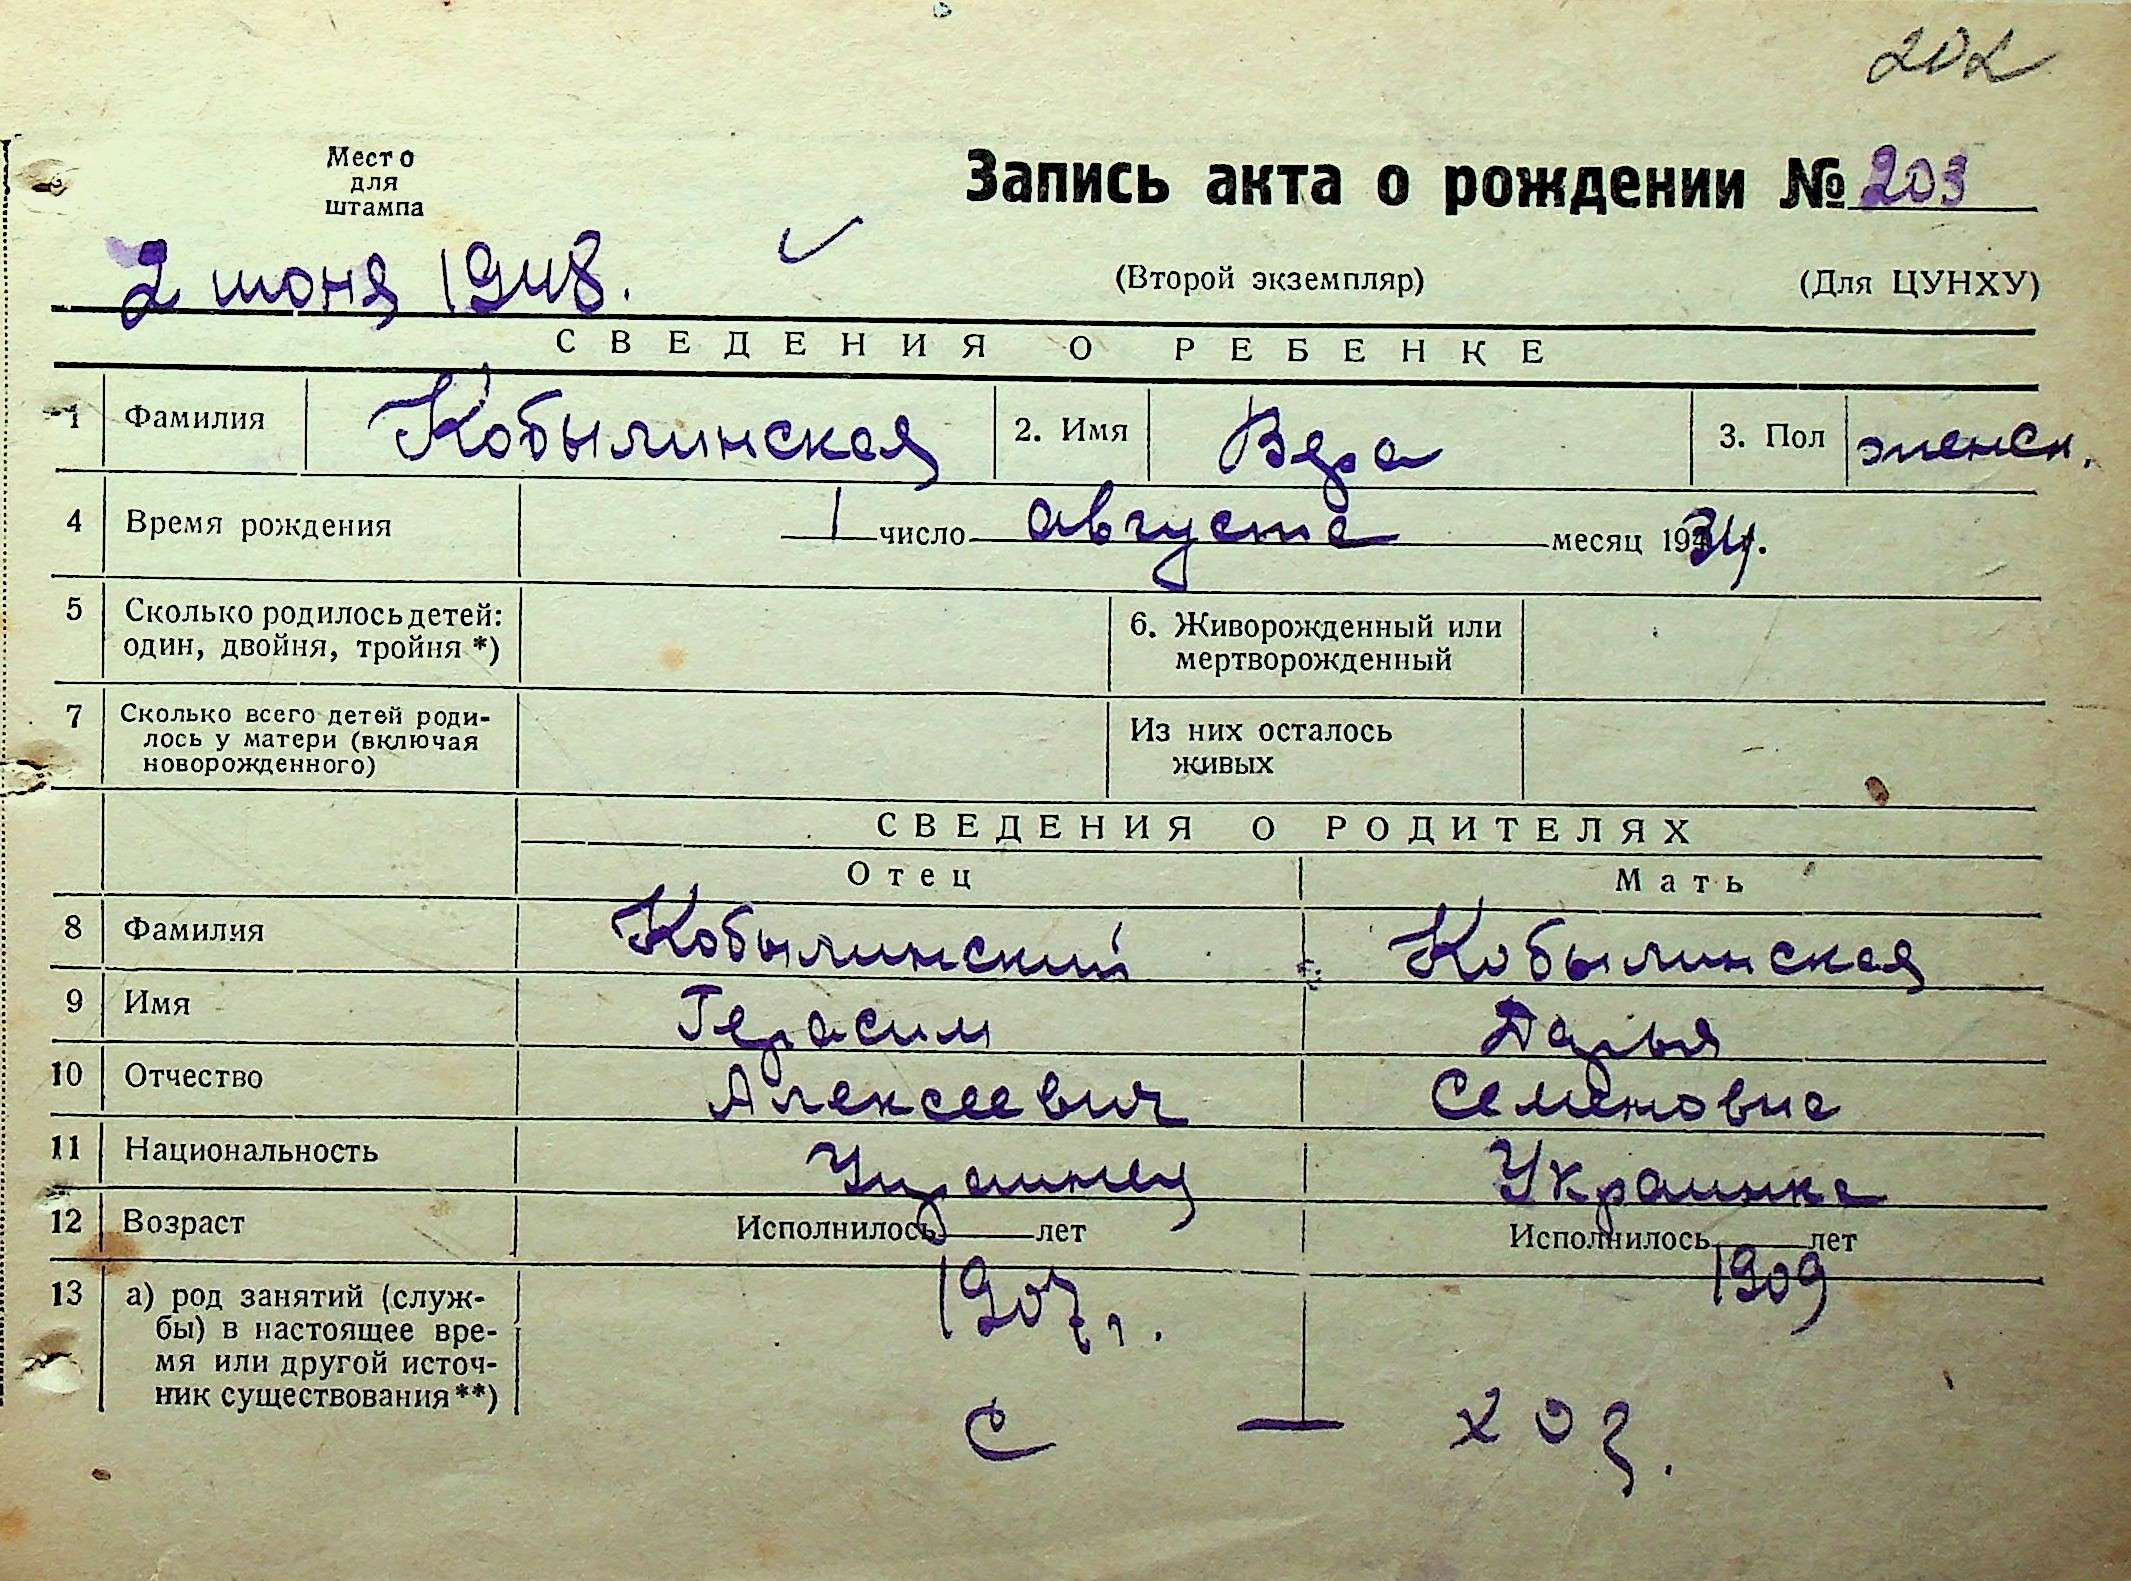 202
Место
для
штампа
Запись акта о рождении № 203
2 июня 1948.
(Второй экземпляр) (Для ЦУНХУ)
СВЕДЕНИЯ О РЕБЕНКЕ
1 Фамилия Кобылинская 2. Имя Вера 3. Пол женск.
4 Время рождения 1 число августа месяц 1934г.
5 Сколько родилось детей: 6. Живорожденный или
один, двойня, тройня *) мертворожденный
7 Сколько всего детей роди- Из них осталось
лось у матери (включая живых
новорожденного)
СВЕДЕНИЯ О РОДИТЕЛЯХ
Отец Мать
8 Фамилия Кобылинский Кобылинская
9 Имя Герасим Дарья
10 Отчество Алексеевич Семеновна
11 Национальность Украинец Украинка
12 Возраст Исполнилось лет Исполнилось лет
1907г. 1909
13 а) род занятий (служ-
бы) в настоящее вре-
мя или другой источ-
ник существования **)
С — хоз.